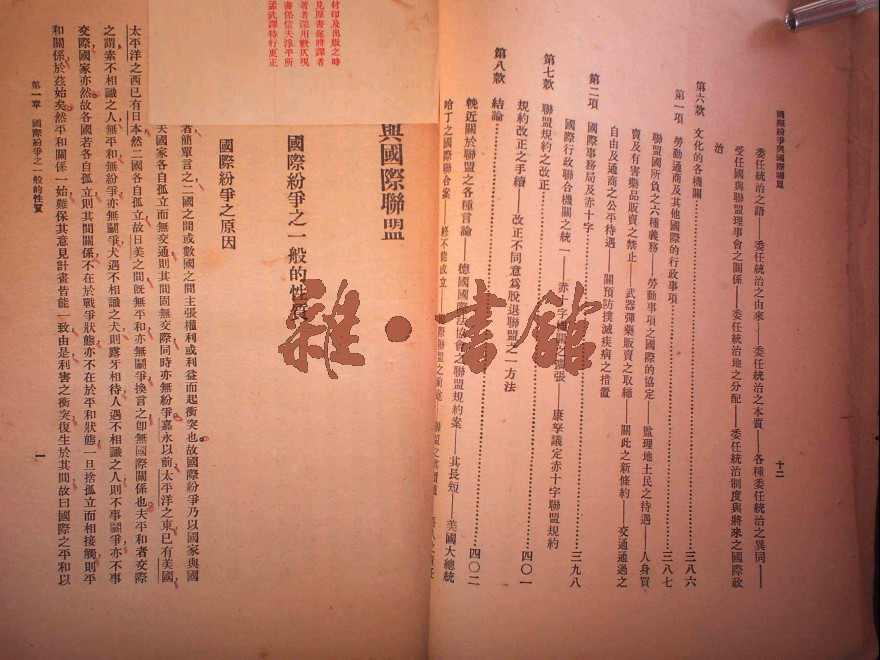 國際紛爭與國際聯盟
十二
委任統治之語——委任統治之由來——委任統治之本質——各種委任統治之異同——
受任國與聯盟理事會之關係——委任統治地之分配——委任統治制度與將來之國際政
治
第六款 文化的各機關…………三八六
第一項 勞動通商及其他國際的行政事項…………三八七
聯盟國所負之六種義務——勞動事項之國際的協定——監理地土民之待遇——人身買
賣及有害藥品販賣之禁止——武器彈藥販賣之取締——關此之新條約——交通通過之
自由及通商之公平待遇——關預防撲滅疾病之措置
第二項 國際事務局及赤十字…………三九八
國際行政聯合機關之統一——赤十字 張——康孥議定赤十字聯盟規約
第七款 聯盟規約之改正…………四〇一
規約改正之手續——改正不同意爲脫退聯盟之一方法
第八款 結論…………四〇二
輓近關於聯盟之各種言論——德國國際法協會之聯盟規約案——其長短——美國大總統
哈丁之國際聯合案——終不能成立
付印及出版之時
見原書遂將譯者
著者深川數仄現
書係信夫淳平所
孟武譯特行更正
與國際聯盟
國際紛爭之一般的性質
國際紛爭之原因
者簡單言之二國之間或數國之間主張權利或利益而起衝突也故國際紛爭乃以國家與國
天國家各自孤立而無交通則其間固無交際同時亦無紛爭嘉永以前太平洋之東已有美國
太平洋之西已有日本然二國各自孤立故日美之間既無平和亦無鬭爭換言之卽無國際關係也夫平和者交際
之謂素不相識之人無平和無紛爭亦無鬭爭犬遇不相識之犬則露牙相待人遇不相識之人則不事鬭爭亦不事
交際國家亦然故各國若各自孤立則其間關係不在於戰爭狀態亦不在於平和狀態一旦捨孤立而相接觸則平
和關係於茲始矣然平和關係一始難保其意見計畫皆能一致由是利害之衝突復生於其間故曰國際之平和以
第一章 國際紛爭之一般的性質
一
雜·書館